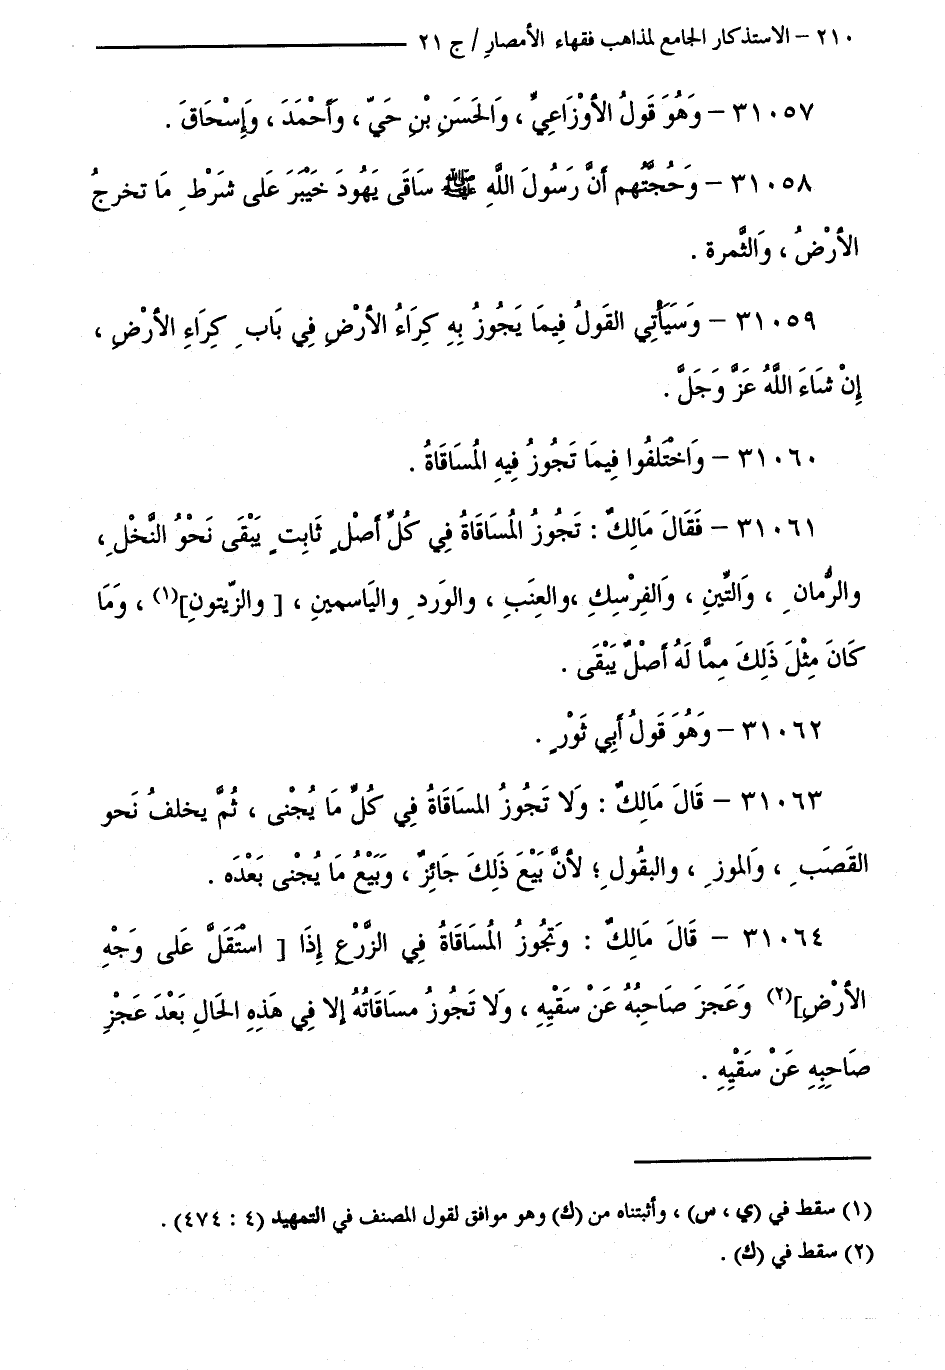 ٢١٠ – الاستذكار الجامع لمذاهب فقهاء الأمصارِ / ج ٢١
٣١٠٥٧ – وَهُوَ قَولُ الأوْزَاعِيِّ ، وَالحَسَنِ بْنِ حَيّ ، وَأَحْمَدَ ، وَإِسْحَاقَ .
٣١٠٥٨ – وَحُجَّتُهم أنَّ رَسُولَ اللَّهِ ﷺ سَاقَى يَهُودَ خَيْبَرَ عَلى شَرْطِ مَا تخرجُ
الأرْضُ ، وَالثَّمرة .
٣١٠٥٩ – وَسَيَأْتِي القَولُ فِيمَا يَجُوزُ بِهِ كِرَاءُ الأرْضِ فِي بَابِ كِرَاءِ الأرْضِ ،
إِنْ شَاءَ اللَّهُ عَزَّ وَجَلَّ .
٣١٠٦٠ – وَاخْتَلفُوا فِيمَا تَجُوزُ فِيهِ المُسَاقَاةُ .
٣١٠٦١ – فَقَالَ مَالِكٌ : تَجُوزُ المُسَاقَاةُ فِي كُلِّ أَصْلٍ ثَابِتٍ يَبْقَى نَحْوُ النَّخْلِ ،
والرُّمانِ ، وَالتِّينِ ، وَالفِرْسِكِ ،والعِنَبِ ، والوَردِ واليَاسمينِ ، [ والزّيتونِ](١) ، وَمَا
كَانَ مِثْلَ ذَلِكَ مِمَّا لَهُ أَصْلٌ يَبْقَى .
٣١٠٦٢ – وَهُوَ قَولُ أَبِي ثَوْرٍ .
٣١٠٦٣ – قَالَ مَالِكٌ : وَلا تَجُوزُ المسَاقَاةُ فِي كُلِّ مَا يُجْنى ، ثُمَّ يخلفُ نَحو
القَصَبِ ، وَالموزِ ، والبقُولِ ؛ لأنَّ بَيْعَ ذَلِكَ جَائِزٌ ، وَبَيْعُ مَا يُجْنى بَعْدَه .
٣١٠٦٤ – قَالَ مَالِكٌ : وَتَجُوزُ المُسَاقَاةُ فِي الزَّرْعِ إِذَا [ اسْتَقَلَّ عَلى وَجْهِ
الأرْضِ](٢) وَعَجزَ صَاحِبُهُ عَنْ سَقْيِهِ ، وَلا تَجُوزُ مسَاقَاتُهُ إلا فِي هَذِهِ الحَالِ بَعْدَ عَجْزِ
صَاحِبِهِ عَنْ سَقْيِهِ .
(١) سقط في (ي ، س) ، وأثبتناه من (ك) وهو موافق لقول المصنف في التمهيد (٤ : ٤٧٤) .
(٢) سقط في (ك) .